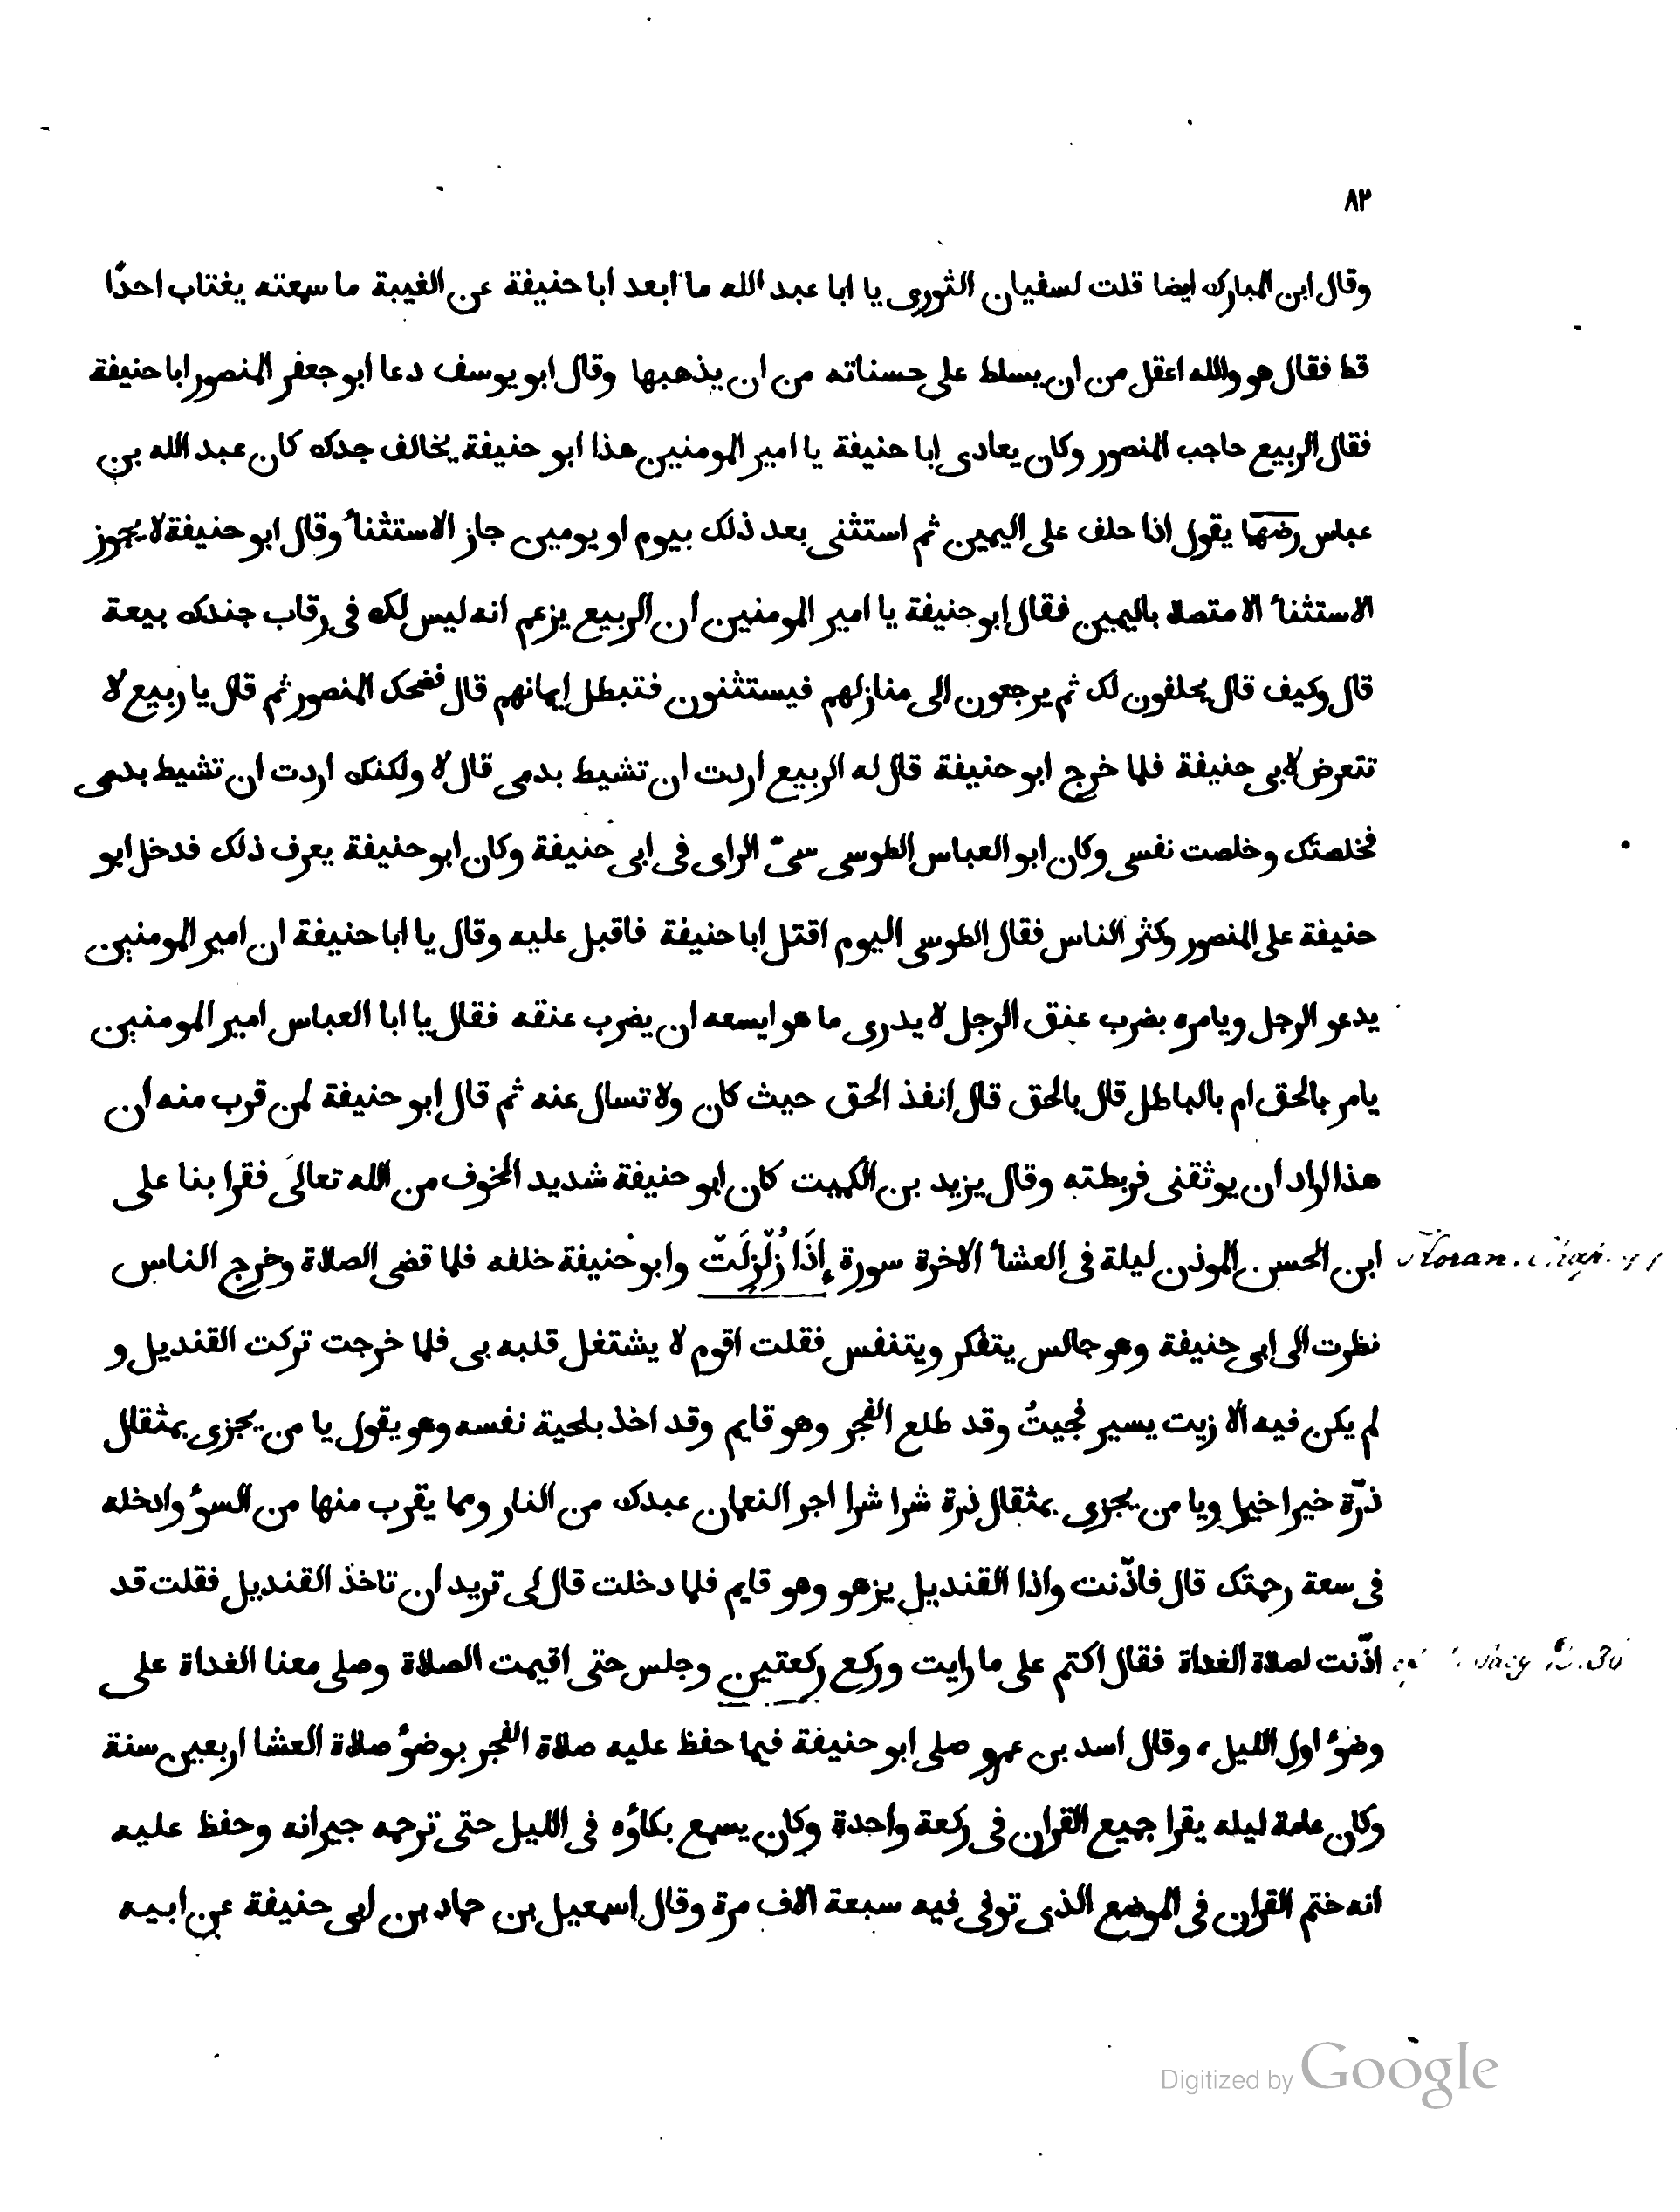 ٨٢
وقال ابن المبارك ايضا قلت لسفيان الثورى يا ابا عبد الله ما ابعد ابا حنيفة عن الغيبة ما سمعته يغتاب احدًا
قط فقال هو والله اعقل من ان يسلط على حسناته من ان يذهبها وقال ابو يوسف دعا ابو جعفر المنصور ابا حنيفة
فقال الربيع حاجب المنصور وكان يعادى ابا حنيفة يا امير المومنين هذا ابو حنيفة يخالف جدك كان عبد الله بن
عباس رضهما يقول اذا حلف على اليمين ثم استثنى بعد ذلك بيوم او يومين جاز الاستثنأ وقال ابو حنيفة لا يجوز
الاستثنأ الا متصلا باليمين فقال ابو حنيفة يا امير المومنين ان الربيع يزعم انه ليس لك فى رقاب جندك بيعة
قال وكيف قال يحلفون لك ثم يرجعون الى منازلهم فيستثنون فتبطل ايمانهم قال فضحك المنصور ثم قال يا ربيع لا
تتعرض لابى حنيفة فلما خرج ابو حنيفة قال له الربيع اردت ان تشيط بدمى قال لا ولكنك اردت ان تشيط بدمى
فخلصتك وخلصت نفسى وكان ابو العباس الطوسى سىّ الراى فى ابى حنيفة وكان ابو حنيفة يعرف ذلك فدخل ابو
حنيفة على المنصور وكثر الناس فقال الطوسى اليوم اقتل ابا حنيفة فاقبل عليه وقال يا ابا حنيفة ان امير المومنين
يدعو الرجل ويامره بضرب عنق الرجل لا يدرى ما هو ايسعه ان يضرب عنقه فقال يا ابا العباس امير المومنين
يامر بالحق ام بالباطل قال بالحق قال انفذ الحق حيث كان ولا تسال عنه ثم قال ابو حنيفة لمن قرب منه ان
هذا اراد ان يوثقنى فربطته وقال يزيد بن الكميت كان ابو حنيفة شديد الخوف من الله تعالى فقرا بنا على
ابن الحسن الموذن ليلة فى العشأ الاخرة سورة إِذَا زُلْزِلَتْ وابو حنيفة خلفه فلما قضى الصلاة وخرج الناس
Koran. Chap.
نظرت الى ابى حنيفة وهو جالس يتفكر ويتنفس فقلت اقوم لا يشتغل قلبه بى فلما خرجت تركت القنديل و
لم يكن فيه الا زيت يسير فجيتُ وقد طلع الفجر وهو قايم وقد اخذ بلحية نفسه وهو يقول يا من يجزى بمثقال
ذرّة خيرا خيرا ويا من يجزى بمثقال ذرة شرا شرا اجر النعمان عبدك من النار ومما يقرب منها من السوٴ وادخله
فى سعة رحمتك قال فاذّنت واذا القنديل يزهو وهو قايم فلما دخلت قال لى تريد ان تاخذ القنديل فقلت قد
اذّنت لصلاة الغداة فقال اكتم على ما رايت وركع ركعتين وجلس حتى اقيمت الصلاة وصلى معنا الغداة على
وضوٴ اول الليل، وقال اسد بن عمرو صلى ابو حنيفة فيما حفظ عليه صلاة الفجر بوضوٴ صلاة العشا اربعين سنة
وكان عامة ليله يقرا جميع القران فى ركعة واحدة وكان يسمع بكاؤه فى الليل حتى ترحمه جيرانه وحفظ عليه
انه ختم القران فى الموضع الذى توفى فيه سبعة الاف مرة وقال اسمعيل بن حماد بن ابى حنيفة عن ابيه
Digitized by Google